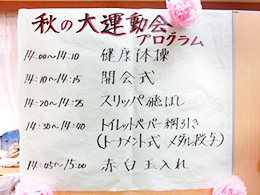 秋の大運動会
プログラム
14:00〜14:10 健康体操
14:10〜14:15 開会式
14:20〜14:25 スリッパ飛ばし
14:30〜14:40 トイレットペーパー綱引き
(トーナメント式 メダル授与)
14:45〜15:00 赤白玉入れ